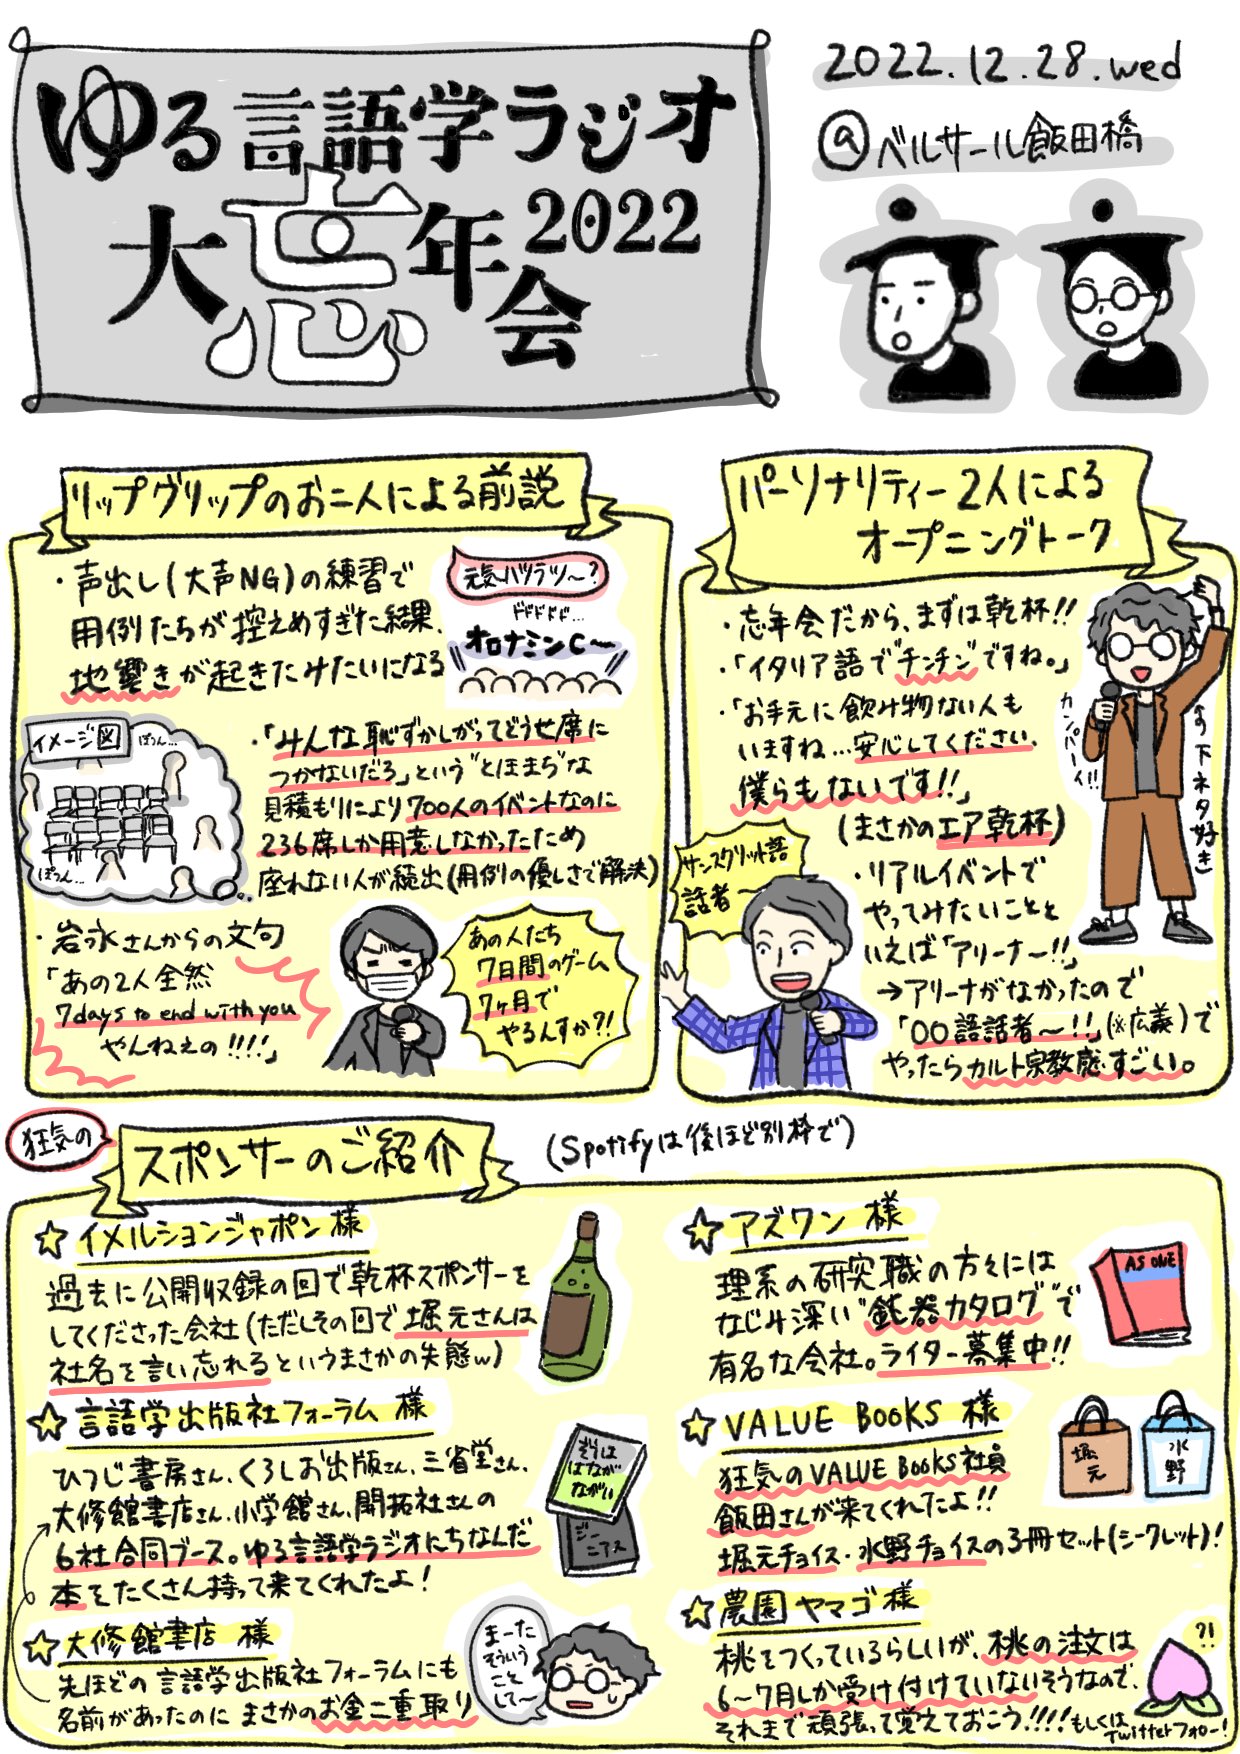 ゆる言語学ラジオ
大忘年会2022
2022.12.28.wed
@ベルサール飯田橋
リップグリップのお二人による前説
・声出し(大声NG)の練習で
用例たちが控えめすぎた結果、
地響きが起きたみたいになる
元気ハツラツ〜?
ドドドドド…
オロナミンC〜
イメージ図
ぽつん…
ぽつん…
・「みんな恥ずかしがってどうせ席に
つかないだろ」という"とほまち"な
見積もりにより700人のイベントなのに
236席しか用意しなかったため
座れない人が続出(用例の優しさで解決)
・岩永さんからの文句
「あの2人全然
7days to end with you
やんねぇの!!!!」
あの人たち
7日間のゲーム
7ヶ月で
やるんすか?!
パーソナリティー2人による
オープニングトーク
・忘年会だから、まずは乾杯!!
・「イタリア語でチンチンですね。」
・「お手元に飲み物ない人も
いますね…安心してください、
僕らもないです!!」
(まさかのエア乾杯)
カンパーイ!!
↑の下ネタ好き
サンスクリット語
話者〜
・リアルイベントで
やってみたいことと
いえば「アリーナ〜!!」
→アリーナがなかったので
「〇〇語話者〜!!」(※広義)で
やったらカルト宗教感すごい。
狂気の
スポンサーのご紹介
(Spotifyは後ほど別枠で)
☆イメルションジャポン様
過去に公開収録の回で乾杯スポンサーを
してくださった会社(ただしその回で堀元さんは
社名を言い忘れるというまさかの失態w)
☆言語学出版社フォーラム様
ひつじ書房さん、くろしお出版さん、三省堂さん、
大修館書店さん、小学館さん、開拓社さんの
6社合同ブース。ゆる言語学ラジオにちなんだ
本をたくさん持って来てくれたよ!
ぞうは
はなが
ながい
ジー
ニアス
☆大修館書店 様
先ほどの言語学出版社フォーラムにも
名前があったのにまさかのお金二重取り
まーた
そういう
こと
して〜
☆アズワン様
理系の研究職の方々には
なじみ深い"鈍器カタログ"で
有名な会社。ライター募集中!!
AS ONE
☆VALUE BOOKS 様
狂気のVALUE BOOKS社員
飯田さんが来てくれたよ!!
堀元チョイス・水野チョイスの3冊セット(シークレット)!
堀元
水野
☆農園ヤマゴ様
桃をつくっているらしいが、桃の注文は
6〜7月しか受け付けていないそうなので、
それまで頑張って覚えておこう!!!!もしくは
Twitterフォロー!
?!